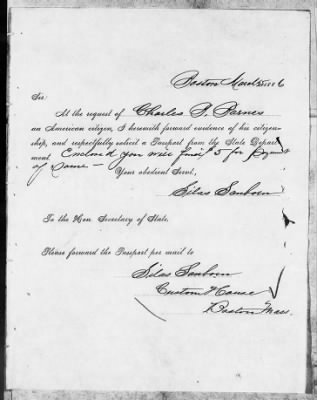 Boston March 5 1886
Sir:
At the request of Charles P. Barnes
an American citizen, I herewith forward evidence of his citizen-
ship, and respectfully solicit a Passport from the State Depart-
ment Enclosed you will find 5 for payment
of same —
Your obedient Servt,
Silas Sanborn
To the Hon. Secretary of State.
Please forward the Passport per mail to
Silas Sanborn
Custom House
Boston Mass.